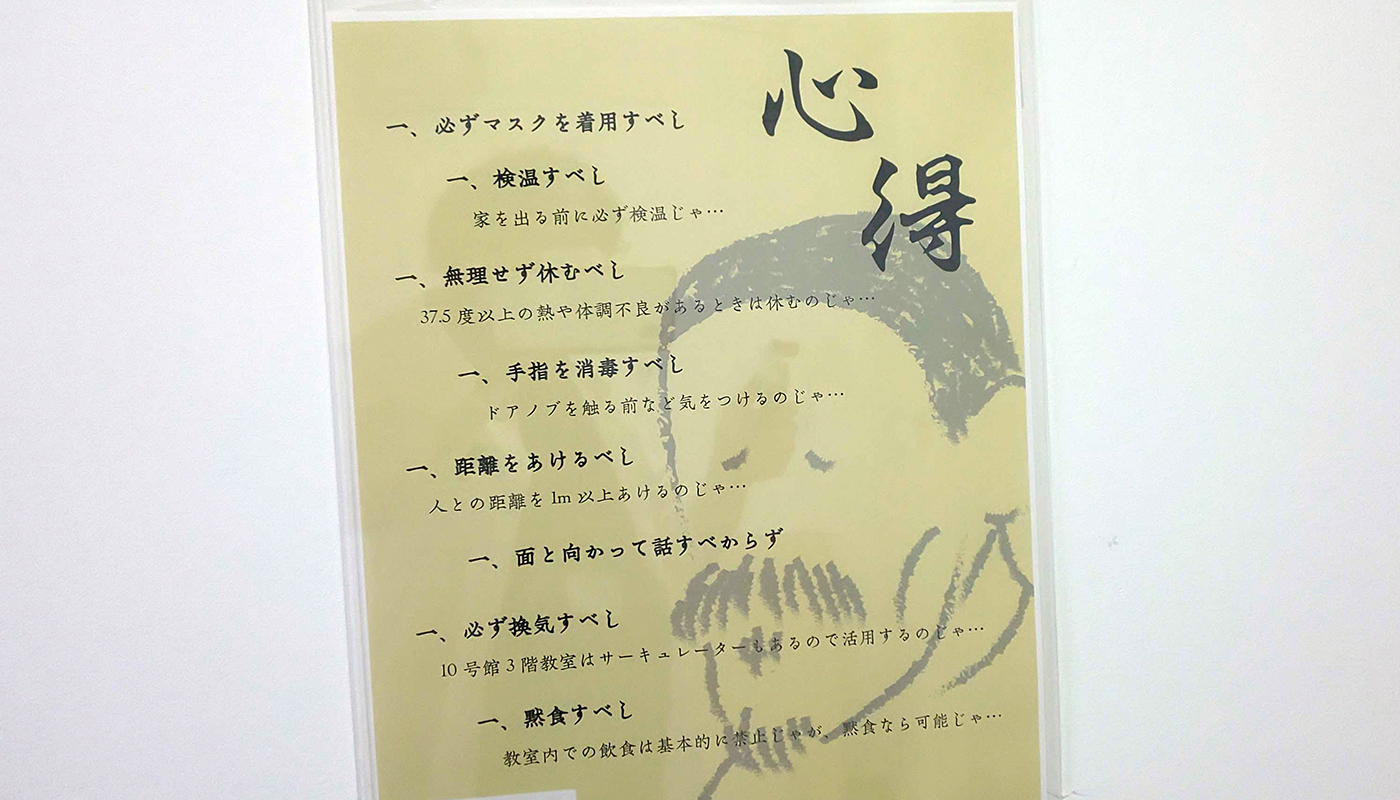 心得
一、必ずマスクを着用すべし
一、検温すべし
家を出る前に必ず検温じゃ…
一、無理せず休むべし
37.5 度以上の熱や体調不良があるときは休むのじゃ…
一、手指を消毒すべし
ドアノブを触る前など気をつけるのじゃ…
一、距離をあけるべし
人との距離を 1m 以上あけるのじゃ…
一、面と向かって話すべからず
一、必ず換気すべし
10 号館 3 階教室はサーキュレーターもあるので活用するのじゃ…
一、黙食すべし
教室内での飲食は基本的に禁止じゃが、黙食なら可能じゃ…